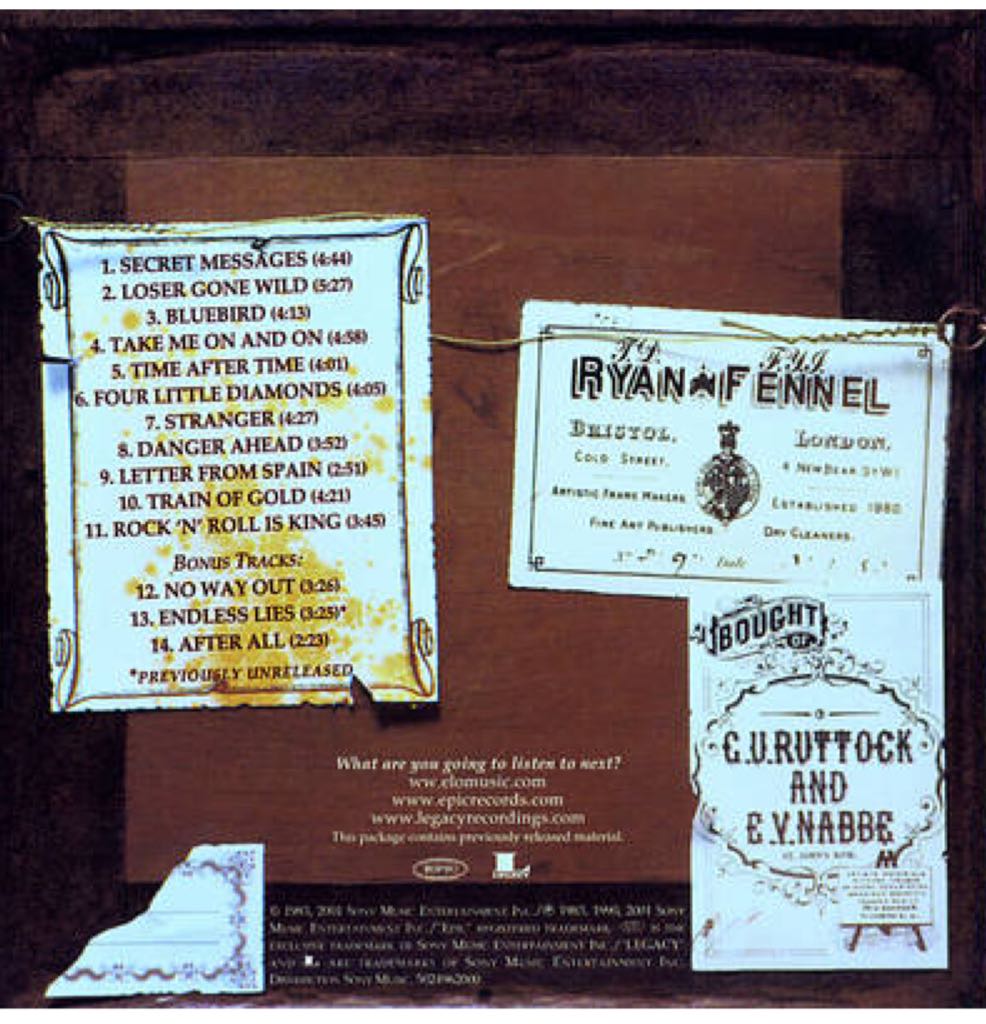 1. SECRET MESSAGES (4:44)
2. LOSER GONE WILD (5:27)
3. BLUEBIRD (4:13)
4. TAKE ME ON AND ON (4:58)
5. TIME AFTER TIME (4:01)
6. FOUR LITTLE DIAMONDS (4:05)
7. STRANGER (4:27)
8. DANGER AHEAD (3:52)
9. LETTER FROM SPAIN (2:51)
10. TRAIN OF GOLD (4:21)
11. ROCK 'N' ROLL IS KING (3:45)
BONUS TRACKS:
12. NO WAY OUT (3:26)
13. ENDLESS LIES (3:25)*
14. AFTER ALL (2:23)
*PREVIOUSLY UNRELEASED
T.D. F.Y.J.
RYAN FENNEL
BRISTOL. LONDON.
COLD STREET. 4 NEW BEAR ST W1
ARTISTIC FRAME MAKERS. ESTABLISHED 1880
FINE ART PUBLISHERS. DRY CLEANERS.
BOUGHT
OF
G.U.RUTTOCK
AND
E.V.NABBE
ST. JOHN'S
What are you going to listen to next?
ww.elomusic.com
www.epicrecords.com
www.legacyrecordings.com
This package contains previously released material.
EPIC LEGACY
© 1983, 2001 SONY MUSIC ENTERTAINMENT INC./℗ 1983, 1990, 2001 SONY
MUSIC ENTERTAINMENT INC./"EPIC" REGISTERED TRADEMARK. IS THE
EXCLUSIVE TRADEMARK OF SONY MUSIC ENTERTAINMENT INC./"LEGACY"
AND ARE TRADEMARKS OF SONY MUSIC ENTERTAINMENT INC.
DISTRIBUTION SONY MUSIC.